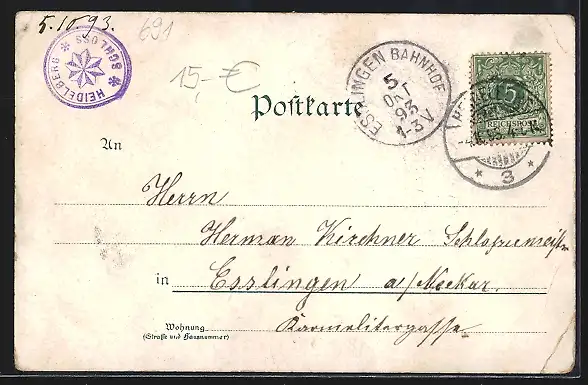 5.10.93.
691
HEIDELBERG * SCHLOSS *
15,- €
ESSLINGEN BAHNHOF
5
OKT
93
1-3 V
5
REICHSPOST
* 3 *
Postkarte
An
Herrn
Herman Kirchner
in Esslingen a/Neckar.
Wohnung
(Straße und Hausnummer)
Karmelitergasse